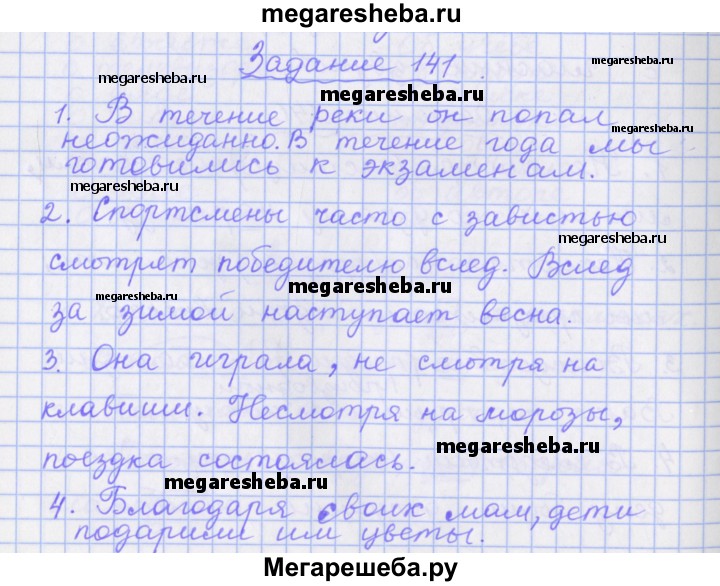 megaresheba.ru
Задание 141.
megaresheba.ru
megaresheba.ru
megaresheba.ru
1. В течение реки он попал
megaresheba.ru
неожиданно. В течение года мы
готовились к экзаменам.
megaresheba.ru
2. Спортсмены часто с завистью
megaresheba.ru
смотрят победителю вслед. Вслед
megaresheba.ru
megaresheba.ru
за зимой наступает весна.
3. Она играла, не смотря на
клавиши. Несмотря на морозы,
megaresheba.ru
поездка состоялась.
megaresheba.ru
4. Благодаря своих мам, дети
подарили им цветы.
Мегарешеба.ру